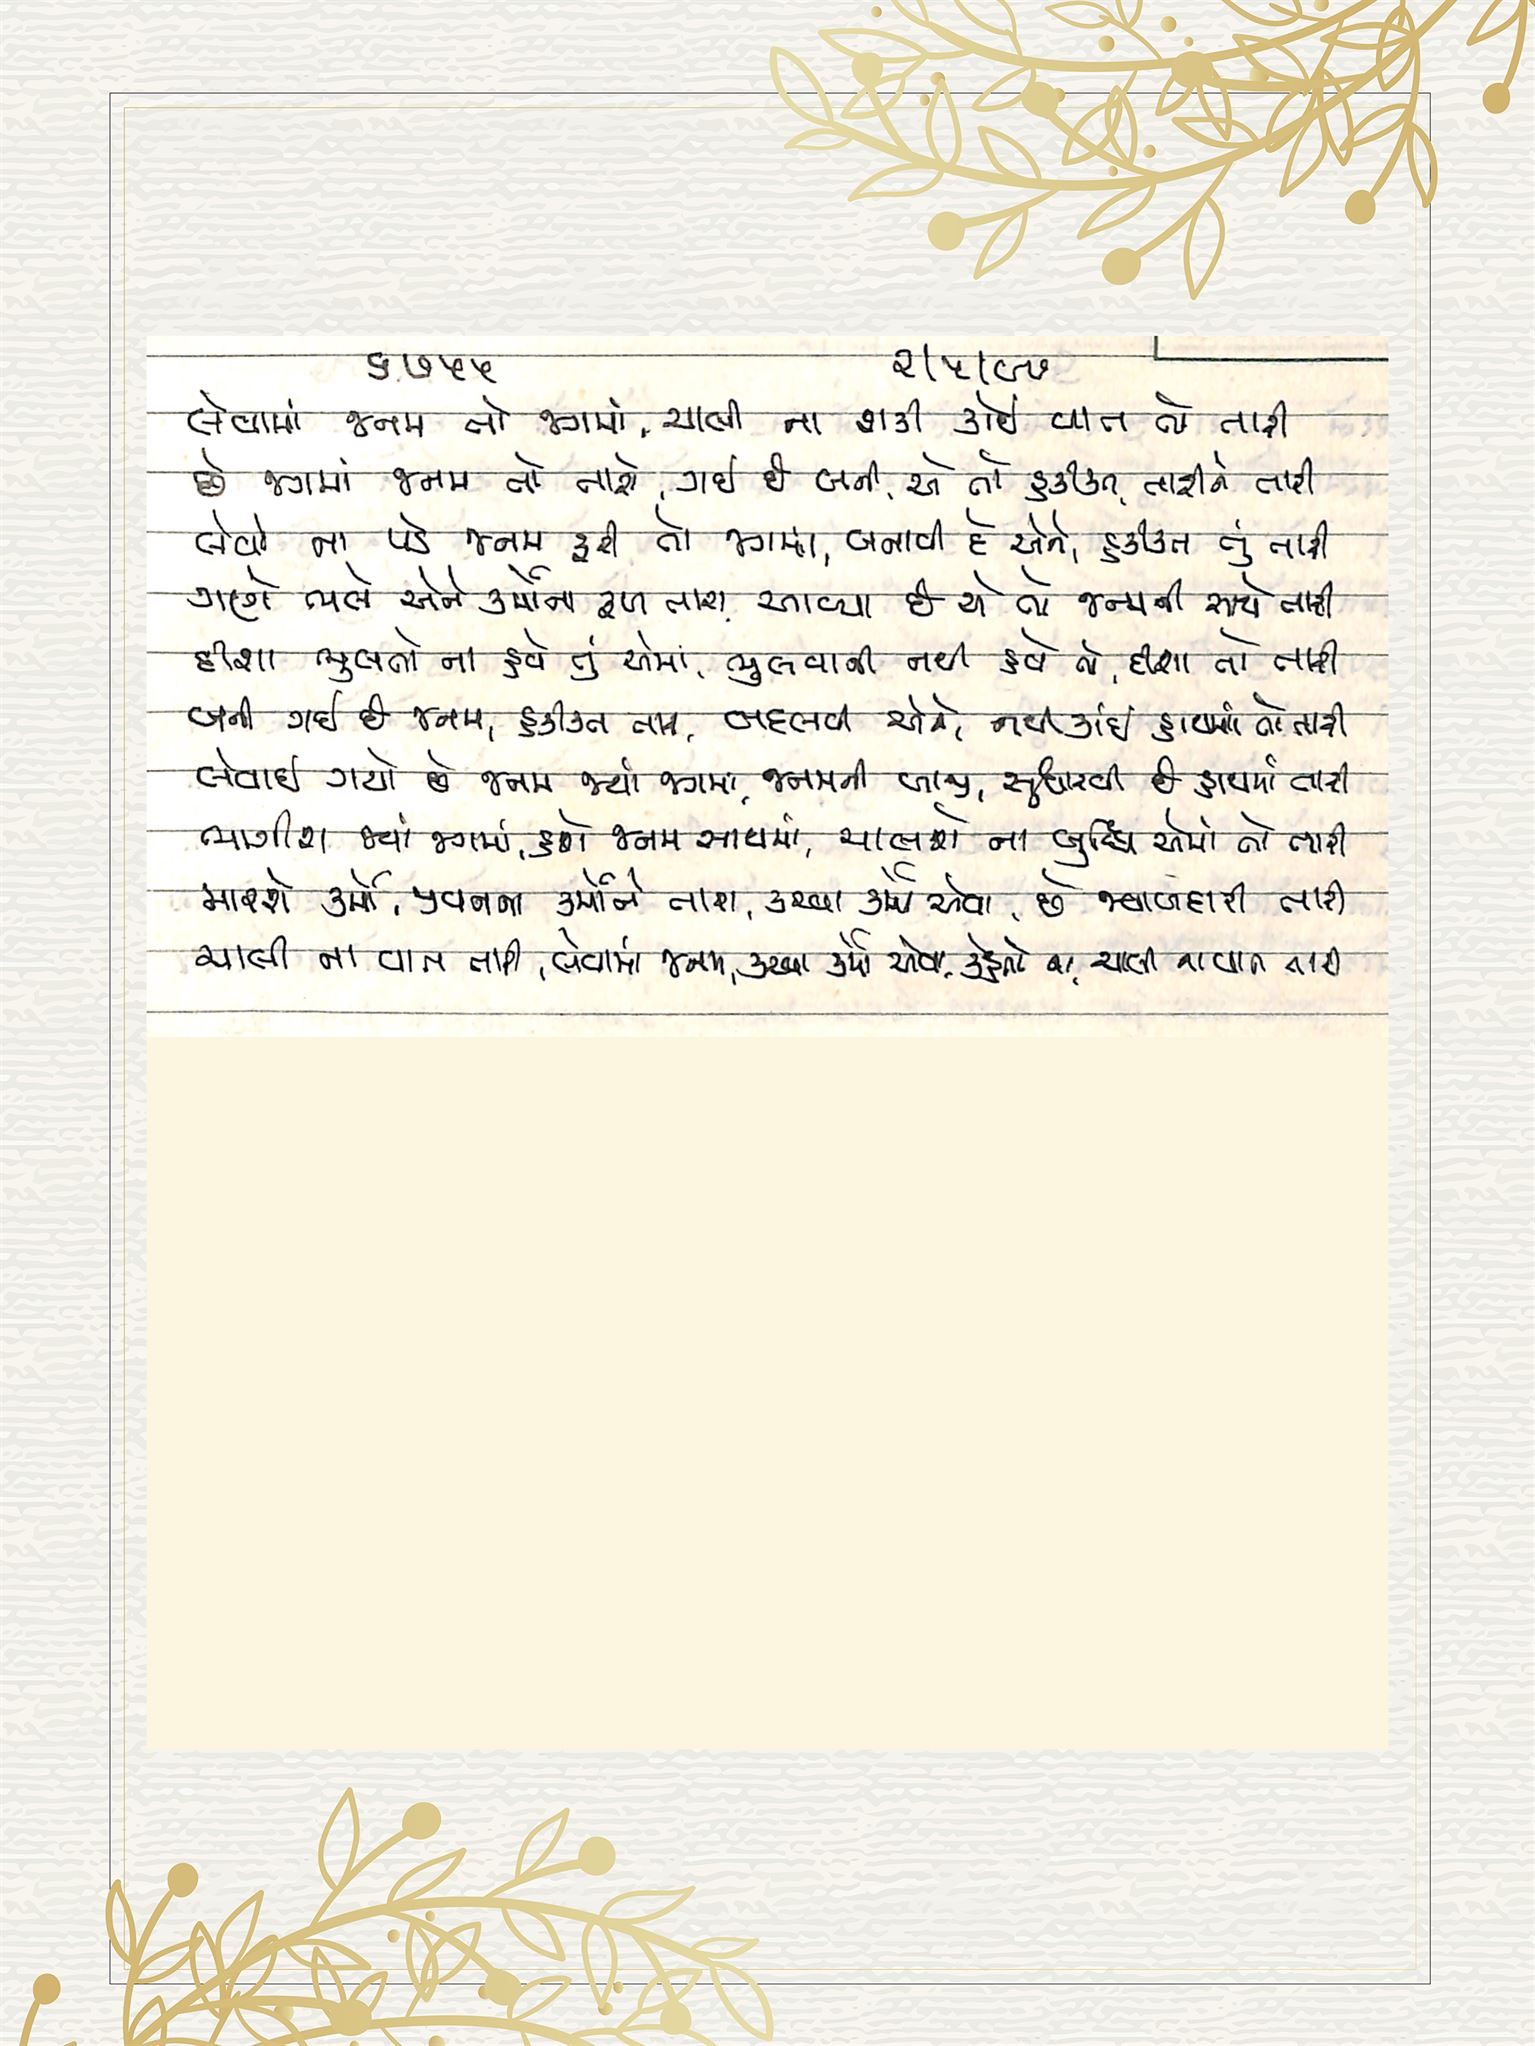 ૬૭૫૫ ૨/૫/૯૭
લેવામાં જનમ તો જગમાં, ચાલી ના શકી કોઈ વાત તો તારી
છે જગમાં જનમ તો તારો, ગઈ છે બની, એ તો હકીકત, તારીને તારી
લેવો ના પડે જનમ ફરી તો જગમાં, બનાવી દે એને, હકીકત તું તારી
ગણજે ભલે એને કર્મોના ફળ તારા, આવ્યા છે એ તો જન્મની સાથે તારી
દીશા ભુલતો ના હવે તું એમાં, ભુલવાની નથી હવે તો, દીશા તો તારી
બની ગઈ છે જનમ, હકીકત તારી, બદલવી એને, નથી કાંઈ હાથમાં તો તારી
લેવાઈ ગયો છે જનમ જ્યાં જગમાં, જનમની બાજી, સુધારવી છે હાથમાં તારી
માગીશ જ્યાં જગમાં, હશે જનમ સાથમાં, ચાલશે ના બુદ્ધિ એમાં તો તારી
મારશે કર્મો, પ્રવચન કર્મોને તારા, કરવા કર્મો એવા, છે જવાબદારી તારી
ચાલી ના વાત તારી, લેવામાં જનમ, કરવા કર્મો એવા, કહેતો ના, ચાલી ના વાત તારી